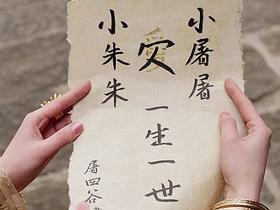 小屠屠
一生一世
小朱朱
屠四谷